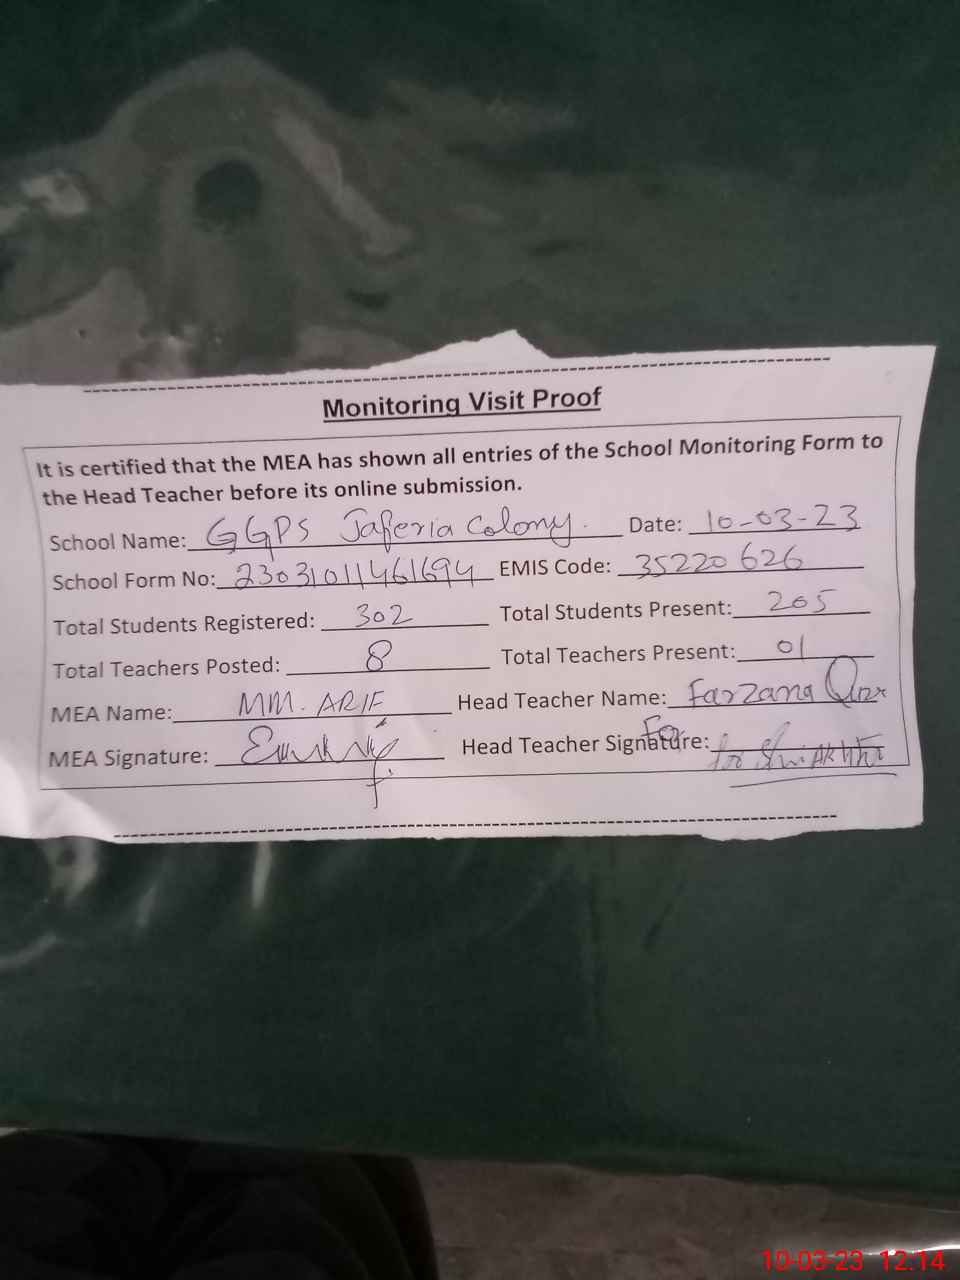 Monitoring Visit Proof
It is certified that the MEA has shown all entries of the School Monitoring Form to
the Head Teacher before its online submission.
School Name: GGPS Jaferia Colony. Date: 10-03-23
School Form No: 23031011461694 EMIS Code: 35220626
Total Students Registered: 302 Total Students Present: 205
Total Teachers Posted: 8 Total Teachers Present: 01
MEA Name: MM. ARIF Head Teacher Name: Farzana
MEA Signature: Head Teacher Signature: For
10-03-23 12:14